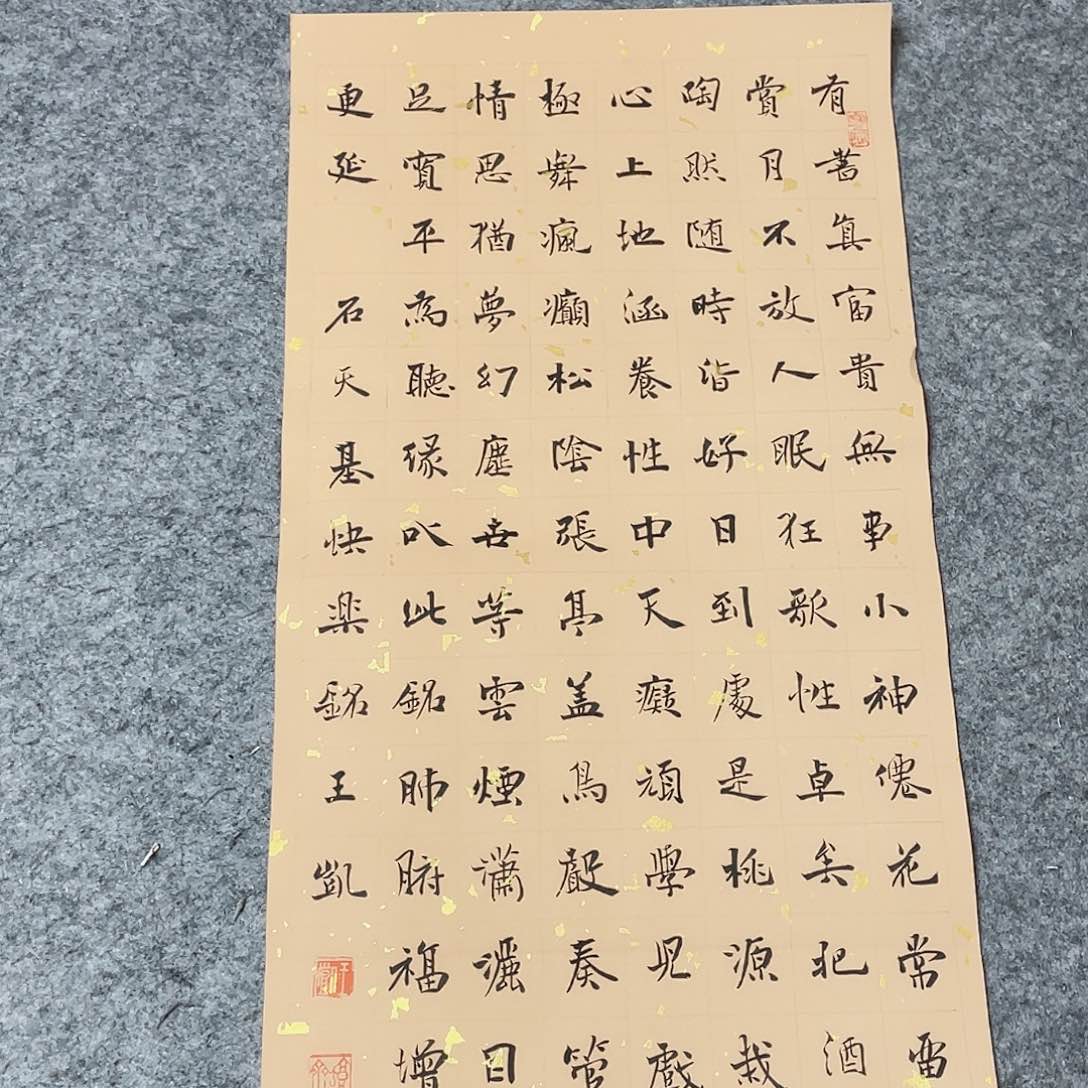 有書真富貴無事小神僊花常留
賞月不放人眠狂歌性卓矣把酒
陶然随時皆好日到處是桃源栽
心上地涵養性中天癡頑學児戲
極舞瘋癲松陰張亭盖鳥聲奏管
情思猶夢幻塵世等雲煙瀟灑日
足實平為聽緣以此銘肺腑福增
更延 石天基快楽銘王凱